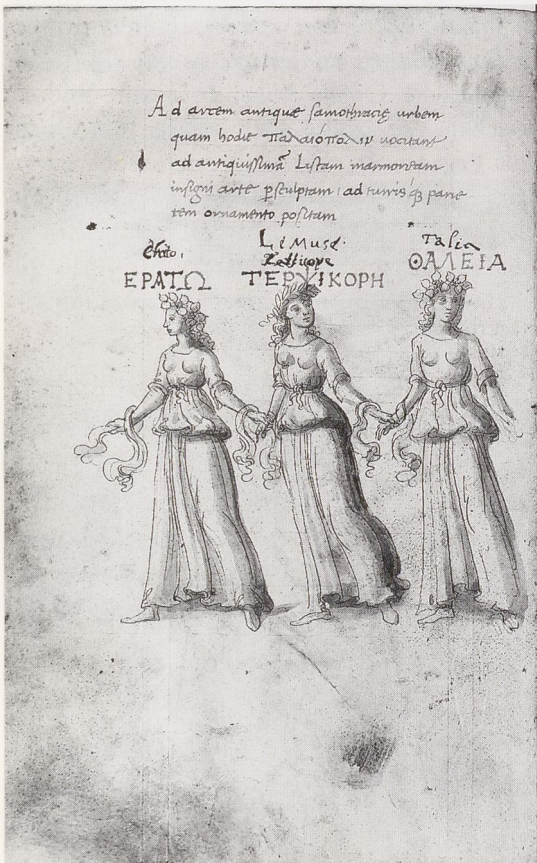 Ad arcem antiquæ samothracię urbem
quam hodie παλαιόπολιν vocitant
ad antiquissimā Listam marmoream
insigni arte ꝑsculptam: ad turris qȝ parie
tem ornamento positam
Li Muse.
Erato. Talia
ΕΡΑΤΩ ΤΕΡΨΙΚΟΡΗ ΘΑΛΕΙΑ